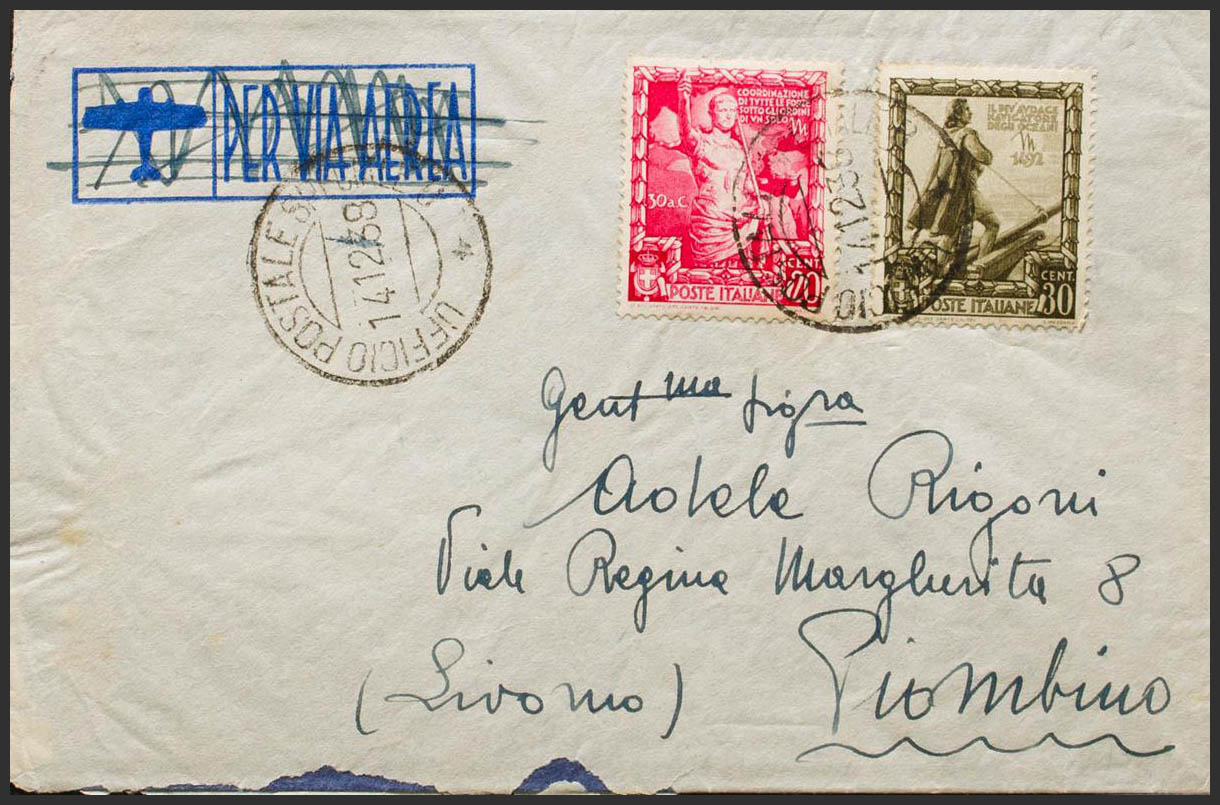 PER VIA AEREA
UFFICIO POSTALE S
14.12.38
COORDINAZIONE
DI TVTTE LE FORZE
SOTTO GLI ORDINI
DI VN SOLO
M
30 a.C.
CENT
20
POSTE ITALIANE
IL PIV AVDACE
NAVIGATORE
DEGLI OCEANI
M
1492
CENT.
30
POSTE ITALIANE
Gent ma Sig ra
Adele Rigoni
Viale Regina Margherita 8
(Livorno) Piombino